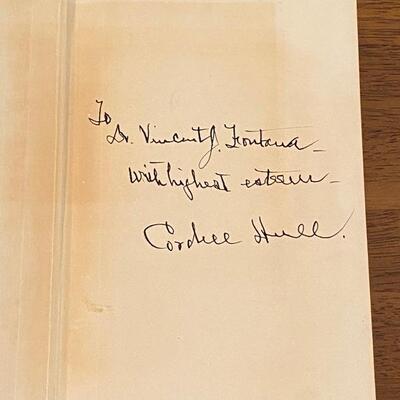 To
Dr. Vincent J. Fontana –
With highest esteem –
Cordell Hull.